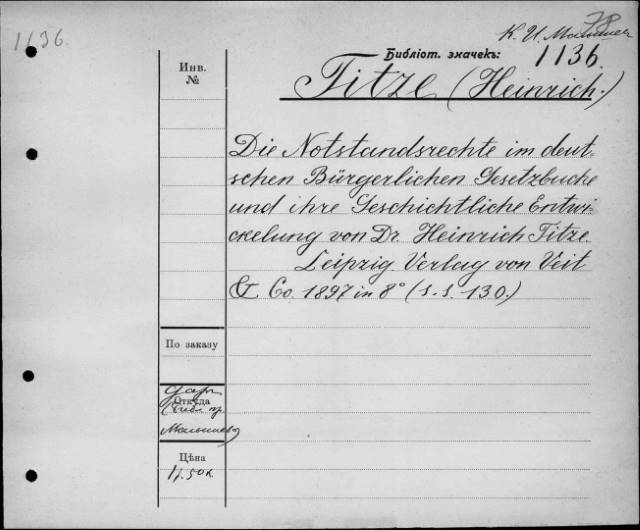 1136.
78
К. И. Малышев
Библіот. значекъ: 1136.
Инв.
№
Titze (Heinrich.)
Die Notstandsrechte im deut-
schen Bürgerlichen Gesetzbuche
und ihre Geschichtliche Entwi-
ckelung von Dr. Heinrich Titze.
Leipzig Verlag von Veit
& Co. 1897 in 8° (S.S. 130.)
По заказу
Откуда
даръ
(библ. пр.
Малышева)
Цѣна